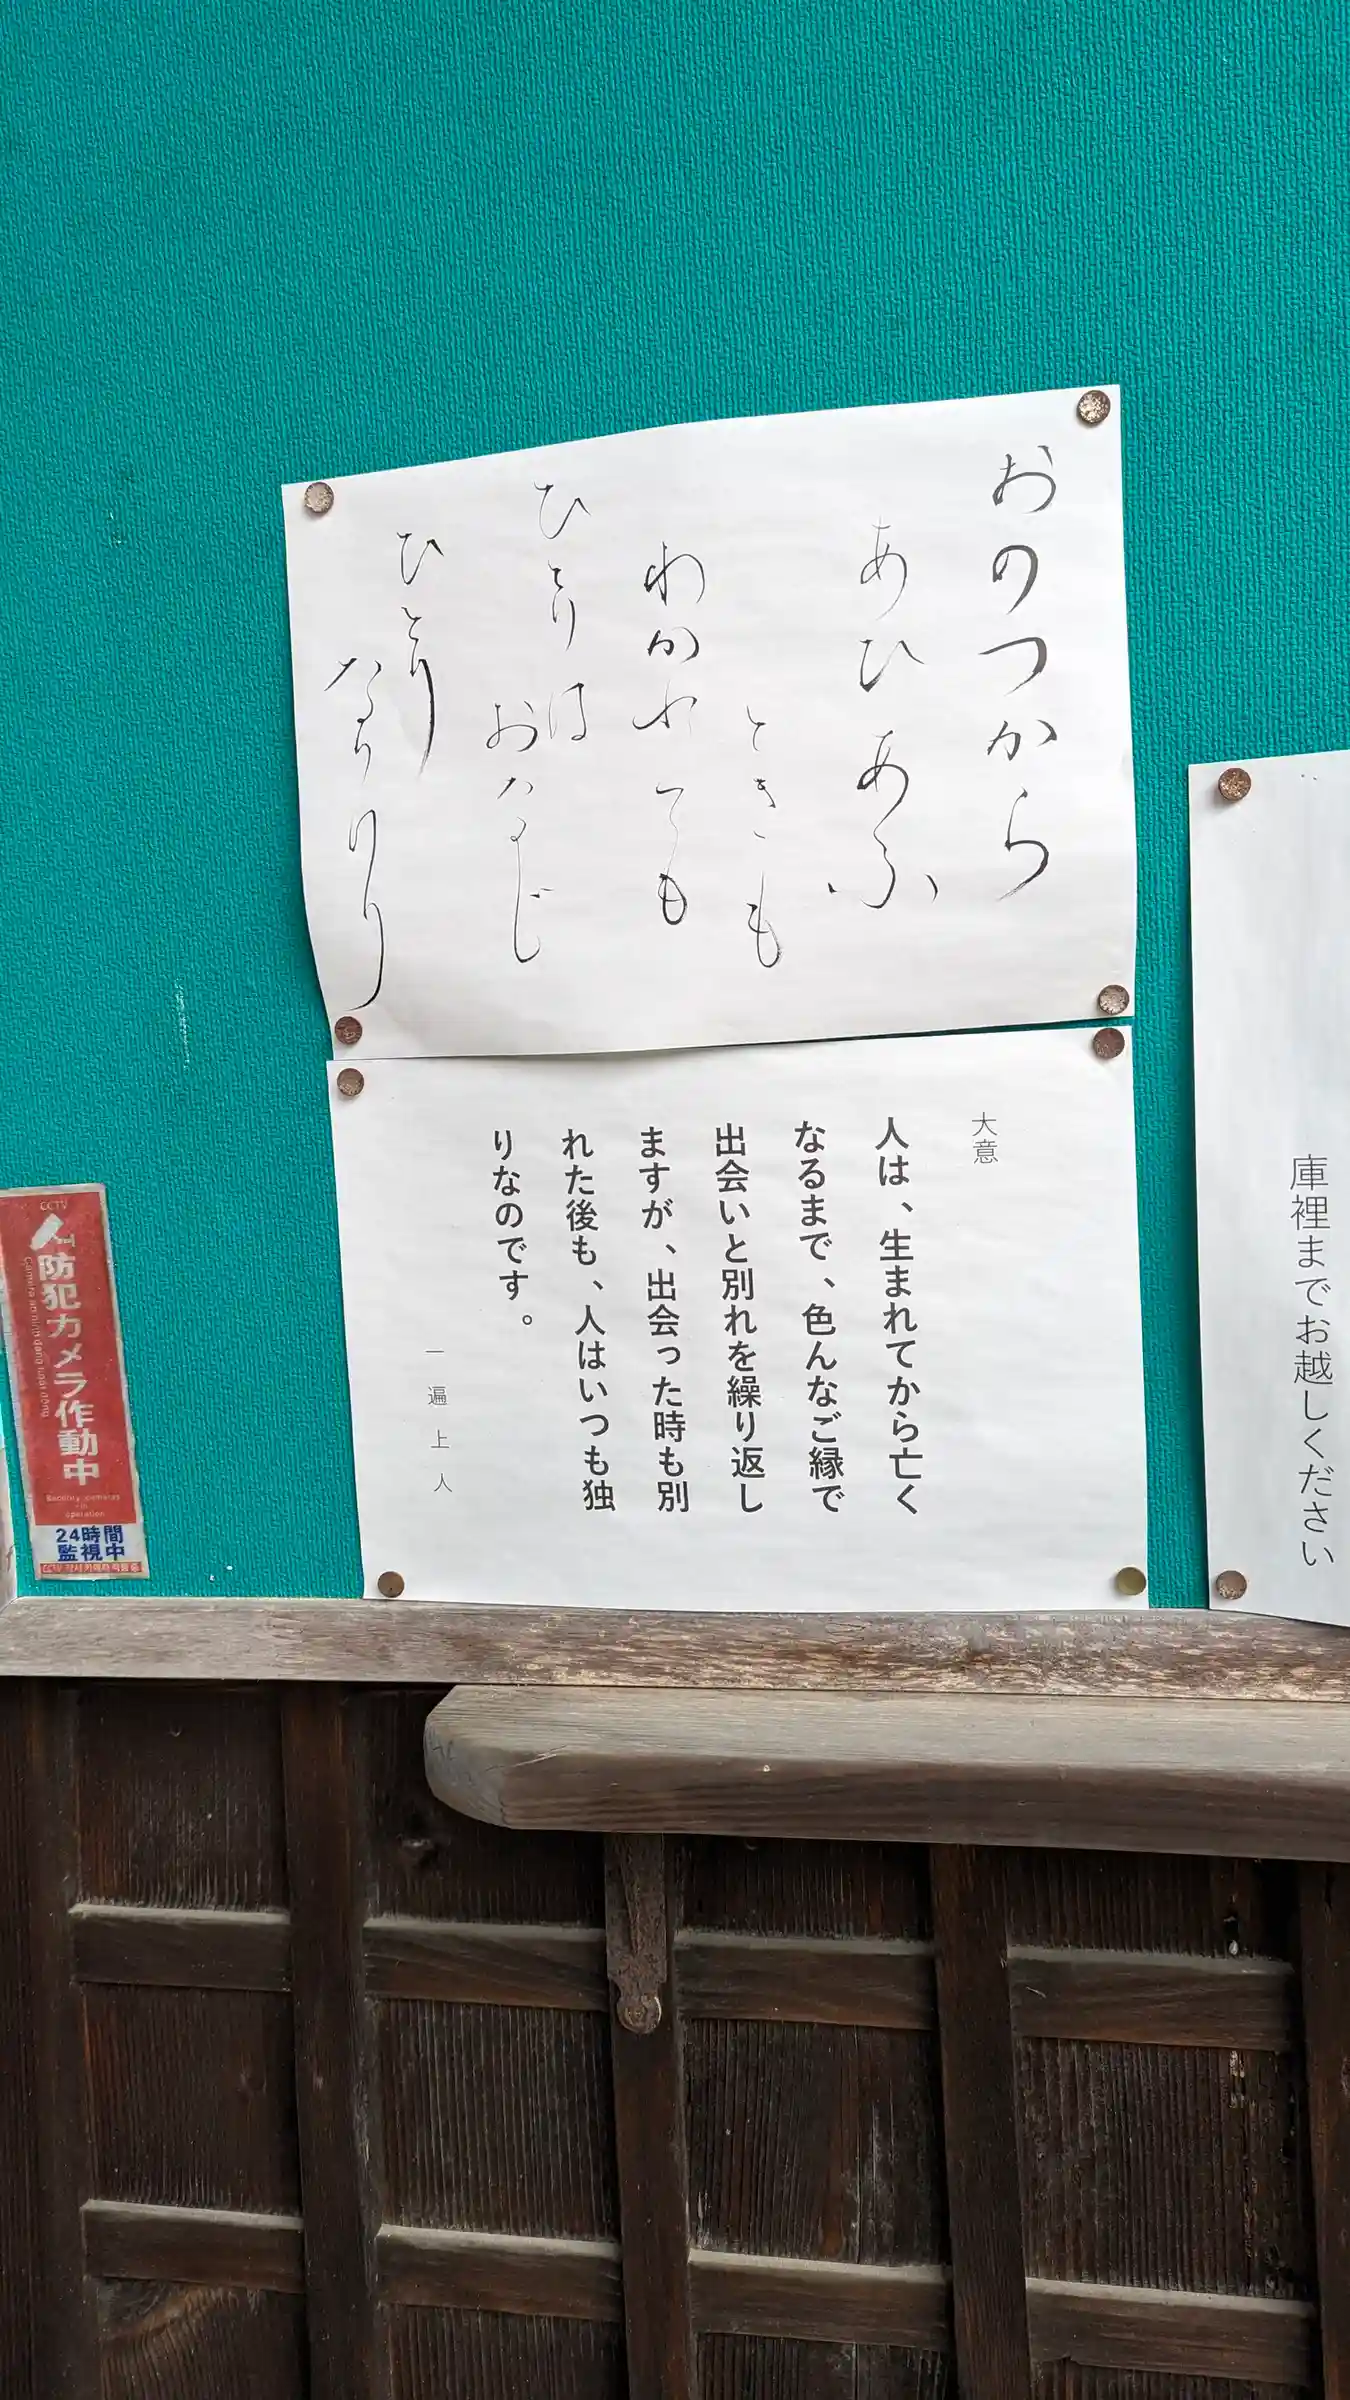 おのつから
あひあふ
ときも
わかれても
ひとりは
おなじ
ひとり
なりけり
大意
人は、生まれてから亡く
なるまで、色んなご縁で
出会いと別れを繰り返し
ますが、出会った時も別
れた後も、人はいつも独
りなのです。
一遍上人
庫裡までお越しください
CCTV
防犯カメラ作動中
Security cameras
in
operation
24時間
監視中